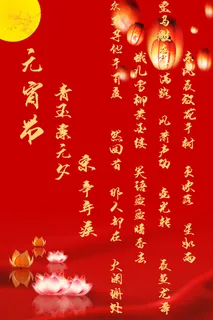 元宵节
青玉案元夕
宋辛弃疾
东风夜放花千树 更吹落 星如雨
宝马雕车香满路 凤箫声动 壶光转 夜鱼龙舞
蛾儿雪柳黄金缕 笑语盈盈暗香去
众里寻他千百度 然回首 那人却在 火阑珊处